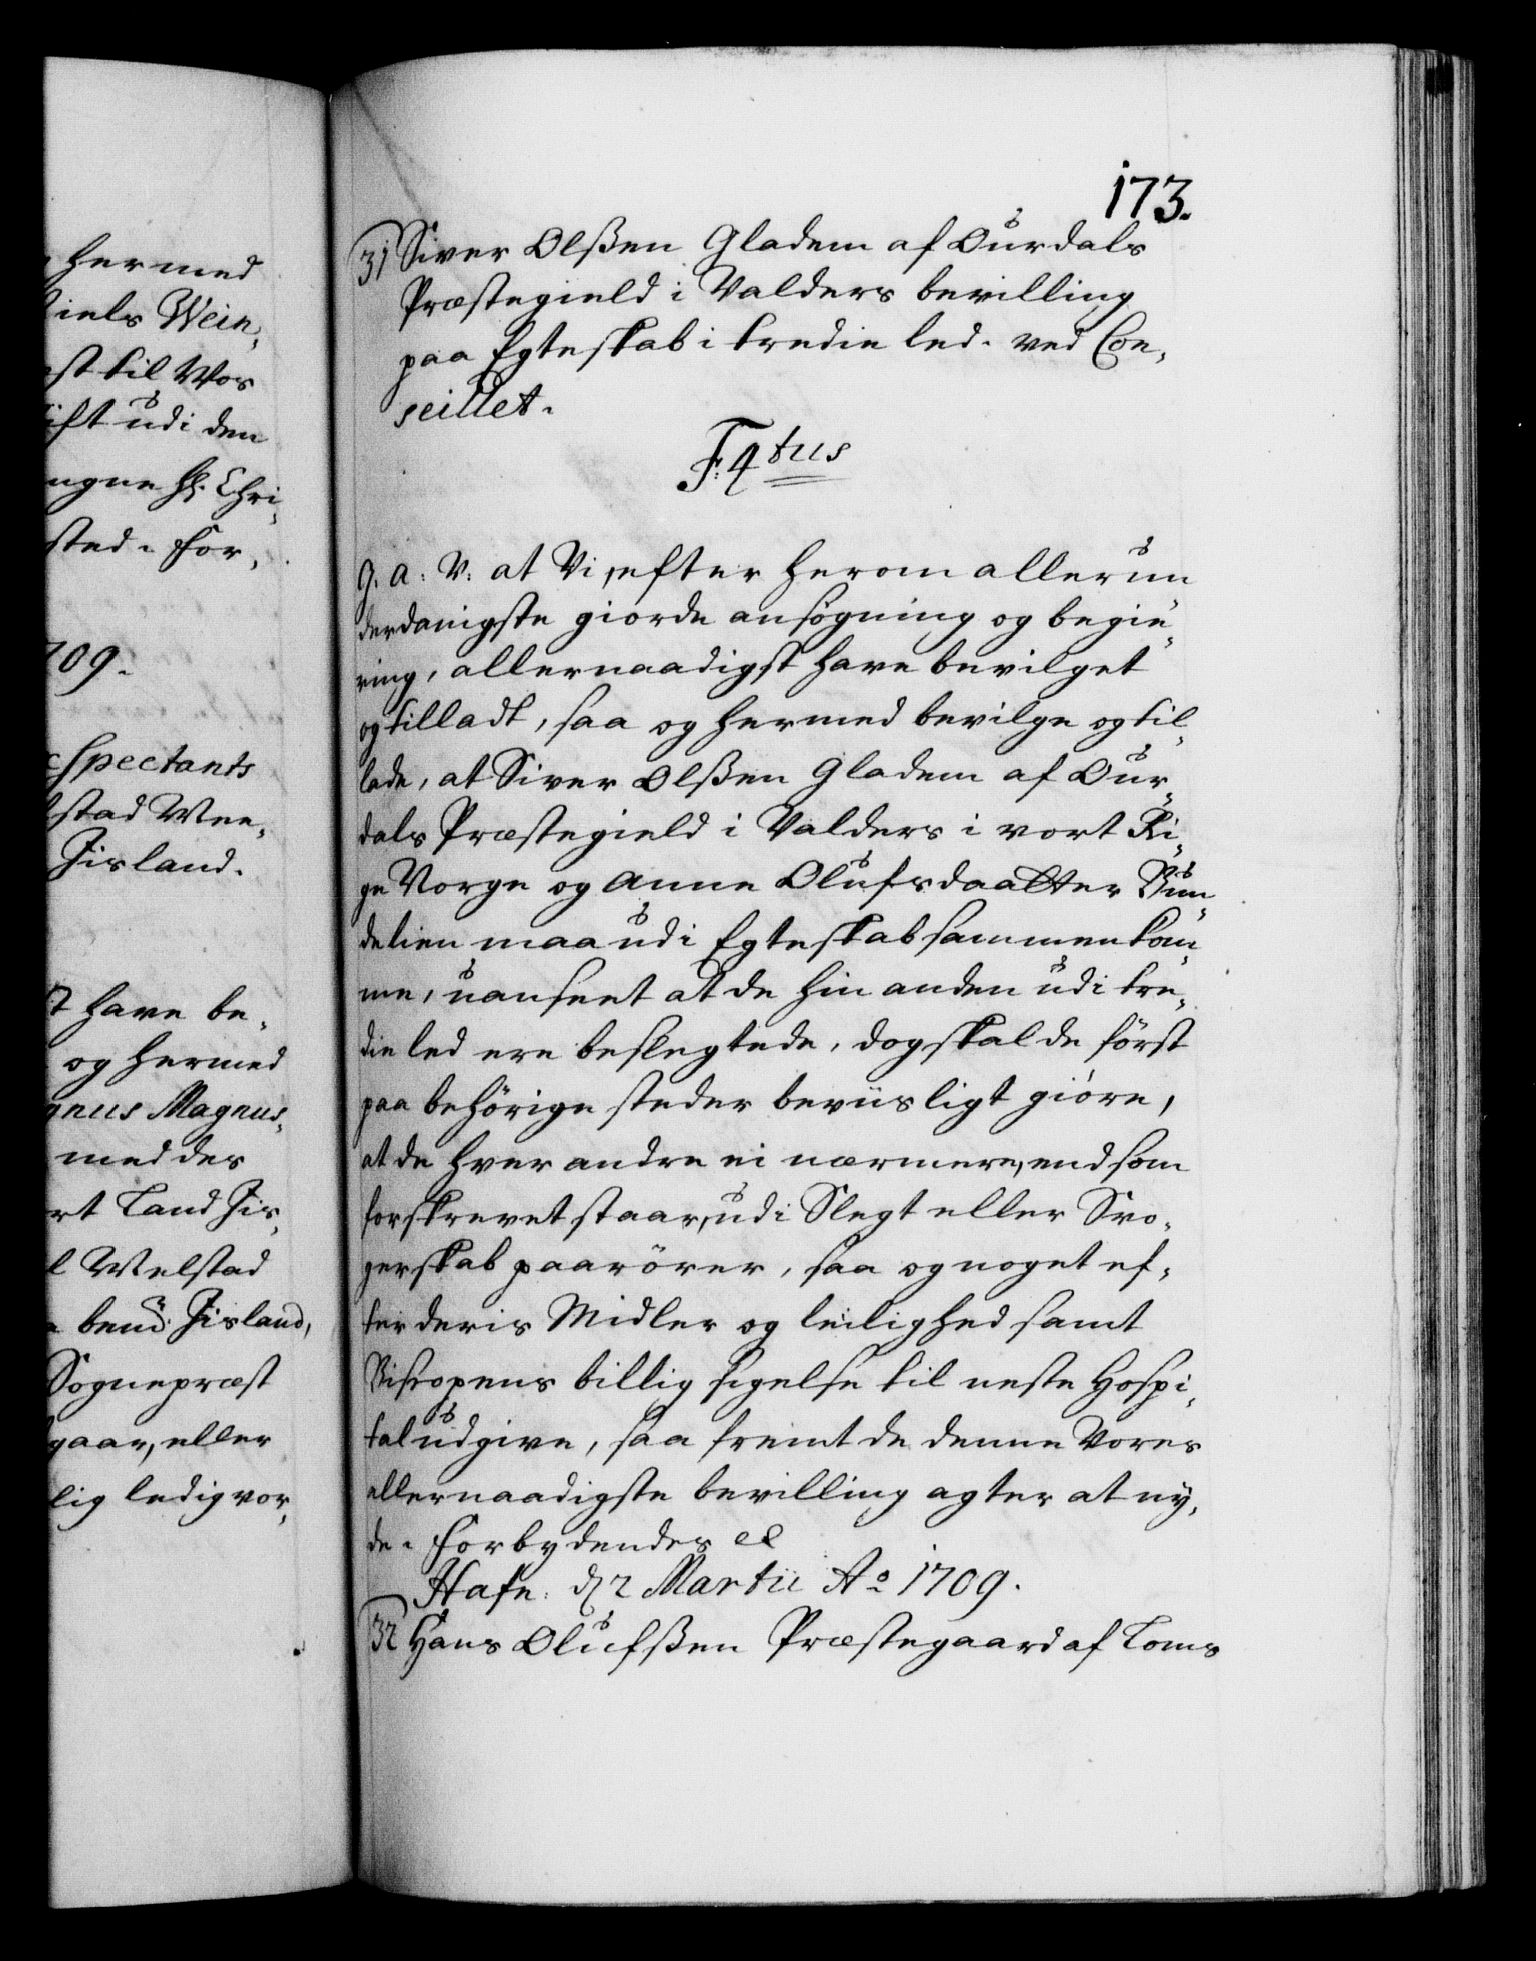 hermed
iels Wein,
st til Wos
ift udi den
ugne H: Chri,
sted. For,
709.
xspectants
lstad Wee,
Jisland.
t have be,
og hermed
gnus Magnus,
med des
rt Land Jis,
l Welstad
bemd: Jisland,
Sognepræst
gaar, eller
lig ledig vor,
173.
31 Siver Olßen Gladem af Ourdals
Præstegield i Valders bevilling
paa Egteskab i tredie led. ved Con,
seillet.
F: 4tus
G. A: V: at Vi, efter herom allerun
derdanigste giorde ansøgning og begie,
ring, allernaadigst have bevilget
og tilladt, saa og hermed bevilge og til,
lade, at Siver Olßen Gladem af Our,
dals Præstegield i Valders i vort Ri,
ge Norge og Anne Olufsdaatter Bun,
delien maa udi Egteskab sammen kom,
me, uanseet at de hin anden udi tre,
die led ere beslegtede, dog skal de först
paa behörige steder beviisligt giöre,
at de hver andre ei nærmere, end som
forskrevet staar, udi Slegt eller Svo,
gerskab paarörer, saa og noget ef,
ter deris Midler og leilighed samt
Biscopens billig sigelse til neste Hospi,
tal udgive, saa fremt de denne Vores
allernaadigste bevilling agter at ny,
de. Forbydendes etc
Hafn: d. 2 Martii Ao 1709.
32 Hans Olufßen Præstegaard af Loms